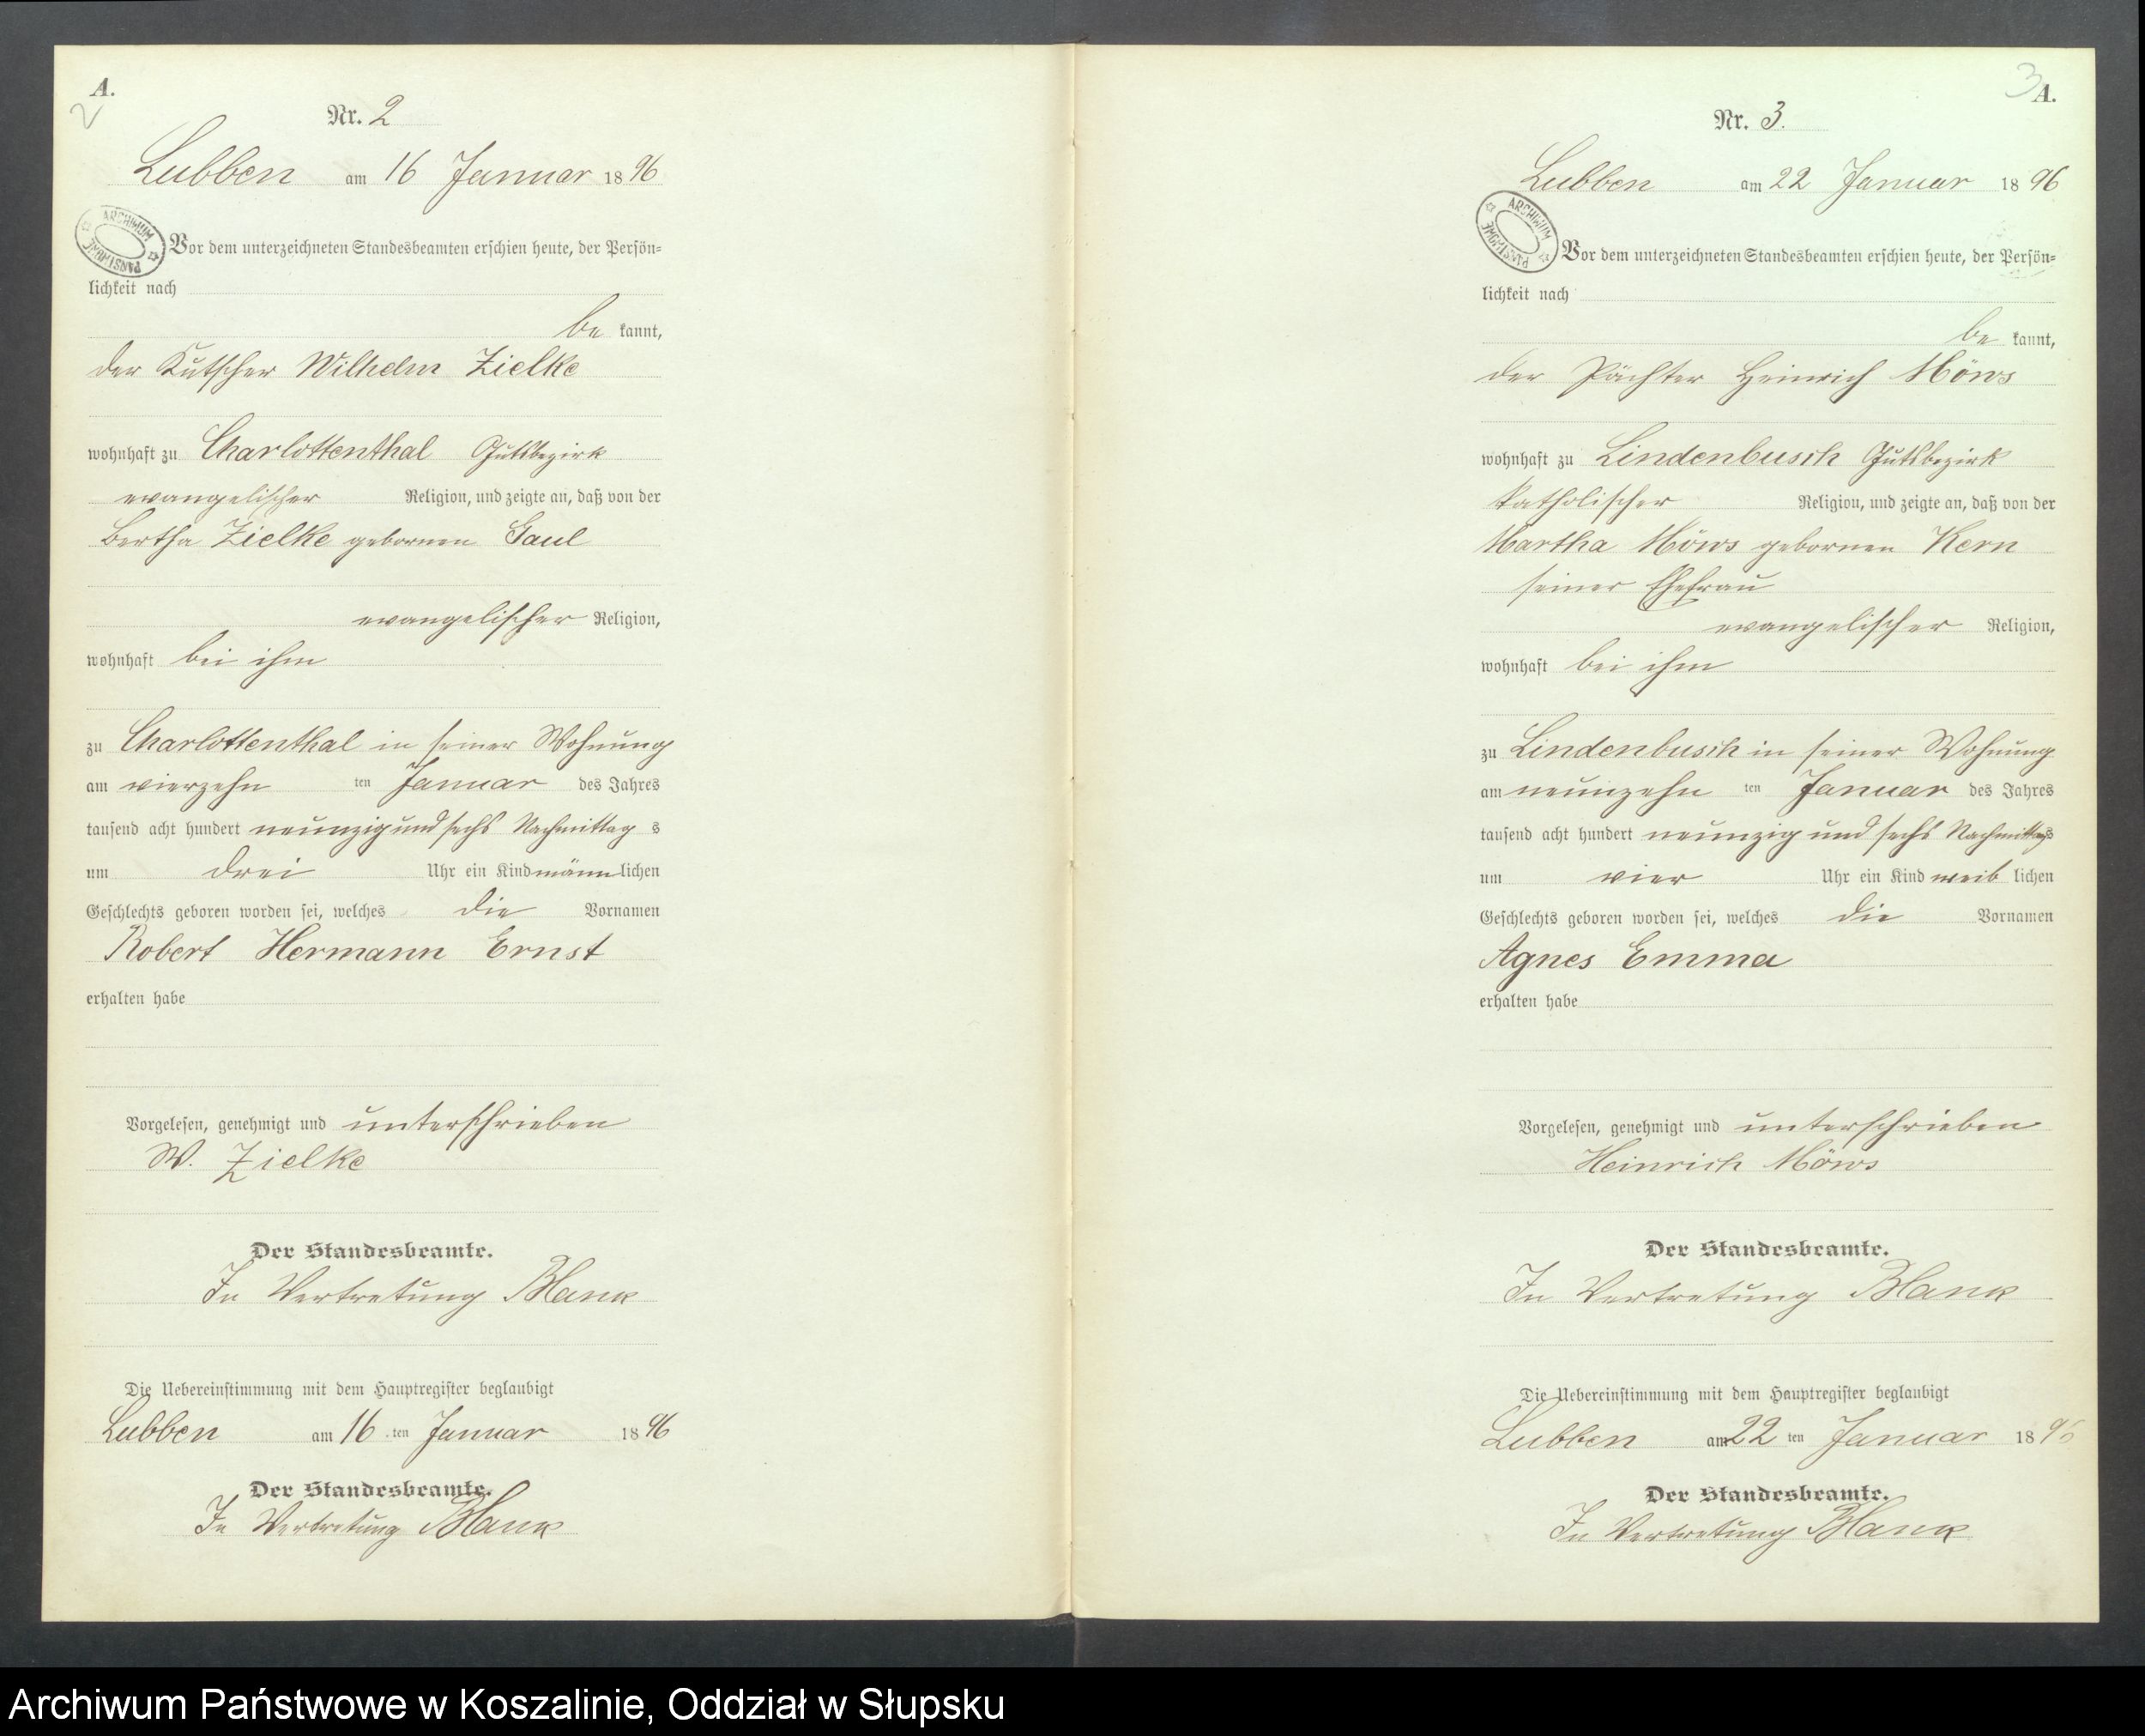 A.
2
Nr. 2
Lubben am 16 Januar 1896
ARCHIWUM PAŃSTWOWE
Vor dem unterzeichneten Standesbeamten erschien heute, der Persön=
lichkeit nach
be kannt,
der Kutscher Wilhelm Zielke
wohnhaft zu Charlottenthal Gutsbezirk
evangelischer Religion, und zeigte an, daß von der
Bertha Zielke gebornen Gaul
evangelischer Religion,
wohnhaft bei ihm
zu Charlottenthal in seiner Wohnung
am vierzehn ten Januar des Jahres
tausend acht hundert neunzig und sechs Nachmittag s
um drei Uhr ein Kind männlichen
Geschlechts geboren worden sei, welches die Vornamen
Robert Hermann Ernst
erhalten habe
Vorgelesen, genehmigt und unterschrieben
W. Zielke
Der Standesbeamte.
In Vertretung Blank
Die Uebereinstimmung mit dem Hauptregister beglaubigt
Lubben am 16 ten Januar 1896
Der Standesbeamte.
In Vertretung Blank
3
A.
Nr. 3.
Lubben am 22 Januar 1896
ARCHIWUM PAŃSTWOWE
Vor dem unterzeichneten Standesbeamten erschien heute, der Persön=
lichkeit nach
be kannt,
der Pächter Heinrich Möws
wohnhaft zu Lindenbusch Gutsbezirk
katholischer Religion, und zeigte an, daß von der
Martha Möws gebornen Kern
seiner Ehefrau
evangelischer Religion,
wohnhaft bei ihm
zu Lindenbusch in seiner Wohnung
am neunzehn ten Januar des Jahres
tausend acht hundert neunzig und sechs Nachmittags
um vier Uhr ein Kind weib lichen
Geschlechts geboren worden sei, welches die Vornamen
Agnes Emma
erhalten habe
Vorgelesen, genehmigt und unterschrieben
Heinrich Möws
Der Standesbeamte.
In Vertretung Blank
Die Uebereinstimmung mit dem Hauptregister beglaubigt
Lubben am 22 ten Januar 1896
Der Standesbeamte.
In Vertretung Blank
Archiwum Państwowe w Koszalinie, Oddział w Słupsku